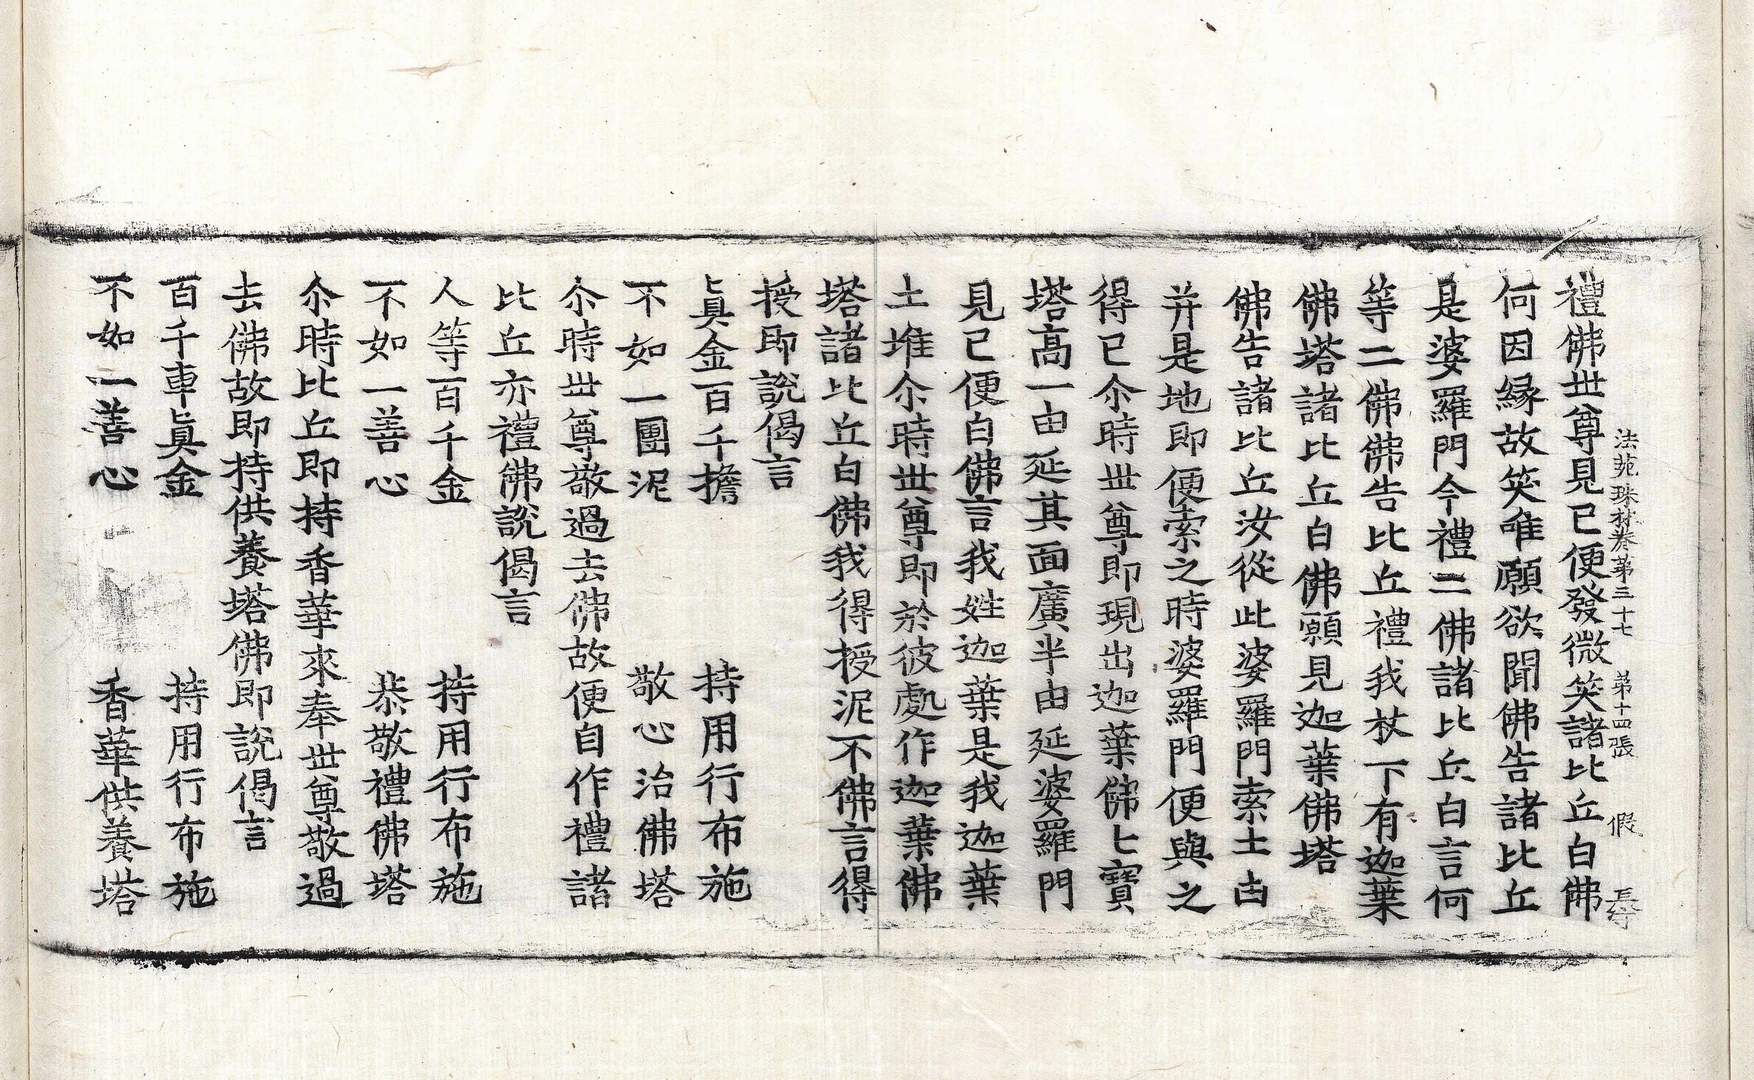 法苑珠林卷第三十七 第十四張 假
禮佛世尊見已便發微笑諸比丘白佛
何因緣故笑唯願欲聞佛告諸比丘
是婆羅門今禮二佛諸比丘白言何
等二佛佛告比丘禮我杖下有迦葉
佛塔諸比丘白佛願見迦葉佛塔
佛告諸比丘汝從此婆羅門索土㘞
并是地即便索之時婆羅門便與之
得已尒時世尊即現出迦葉佛七寶
塔高一由延其面廣半由延婆羅門
見已便白佛言我姓迦葉是我迦葉
土堆尒時世尊即於彼處作迦葉佛
塔諸比丘白佛我得授泥不佛言得
授即說偈言
真金百千擔 持用行布施
不如一團泥 敬心治佛塔
尒時世尊敬過去佛故便自作禮諸
比丘亦禮佛說偈言
人等百千金 持用行布施
不如一善心 恭敬禮佛塔
尒時比丘即持香華來奉世尊敬過
去佛故即持供養塔佛即說偈言
百千車真金 持用行布施
不如一善心 香華供養塔